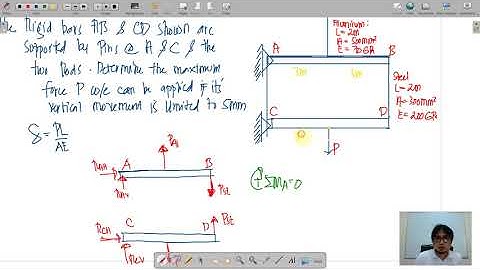 The Rigid bars AB & CD shown are
supported by Pins @ A & C & the
two Rods. Determine the maximum
force P w/c can be applied if its
vertical movement is limited to 5mm
δ = PL
AE
Aluminum:
L = 2m
A = 500mm²
E = 70GPA
A
B
3m
Steel
L = 2m
A = 300mm²
E = 200GPA
C
D
P
PAl
RAH
A
B
RAV
PSt
ΣMA=0
RCH
C
D
PSt
RCV